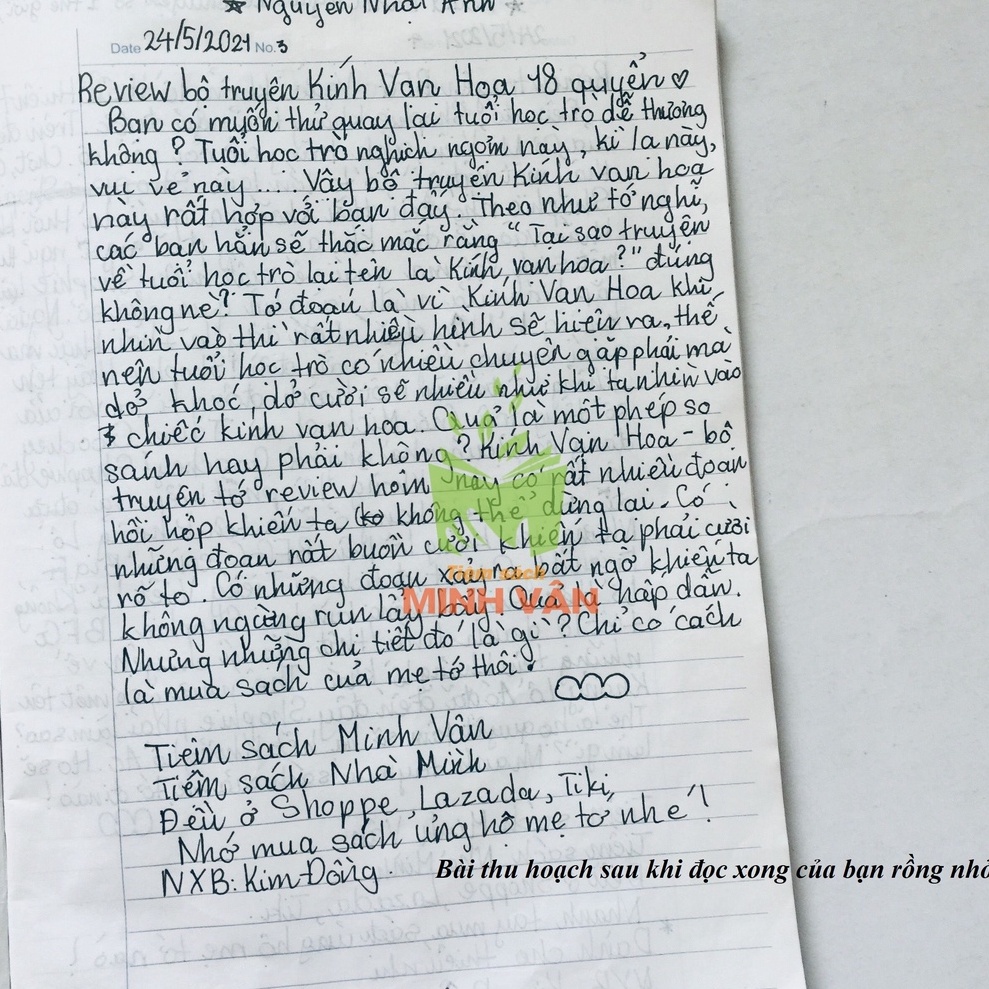 ★ Nguyễn Nhật Ánh ★
Date 24/5/2021 No. 3
Review bộ truyện Kính Vạn Hoa 18 quyển ♡
Bạn có muốn thử quay lại tuổi học trò dễ thương
không? Tuổi học trò nghịch ngợm này, kì lạ này,
vui vẻ này .... Vậy bộ truyện Kính vạn hoa
này rất hợp với bạn đấy. Theo như tớ nghĩ,
các bạn hẳn sẽ thắc mắc rằng "Tại sao truyện
về tuổi học trò lại tên là Kính vạn hoa?" đúng
không nè? Tớ đoán là vì Kính Vạn Hoa khi
nhìn vào thì rất nhiều hình sẽ hiện ra, thế
nên tuổi học trò có nhiều chuyện gặp phải mà
dở khóc, dở cười sẽ nhiều như khi ta nhìn vào
chiếc kính vạn hoa. Quả là một phép so
sánh hay phải không? Kính Vạn Hoa - bộ
truyện tớ review hôm nay có rất nhiều đoạn
hồi hộp khiến ta không thể dừng lại. Có
những đoạn rất buồn cười khiến ta phải cười
rõ to. Có những đoạn xảy ra bất ngờ khiến ta
không ngừng run lẩy bẩy. Quả là hấp dẫn.
Nhưng những chi tiết đó là gì? Chỉ có cách
là mua sách của mẹ tớ thôi.
Tiệm sách
MINH VÂN
Tiệm sách Minh Vân
Tiệm sách Nhà Mình
Đều ở Shoppe, Lazada, Tiki,
Nhớ mua sách ủng hộ mẹ tớ nhé!
NXB: Kim Đồng.
Bài thu hoạch sau khi đọc xong của bạn rồng nhỏ